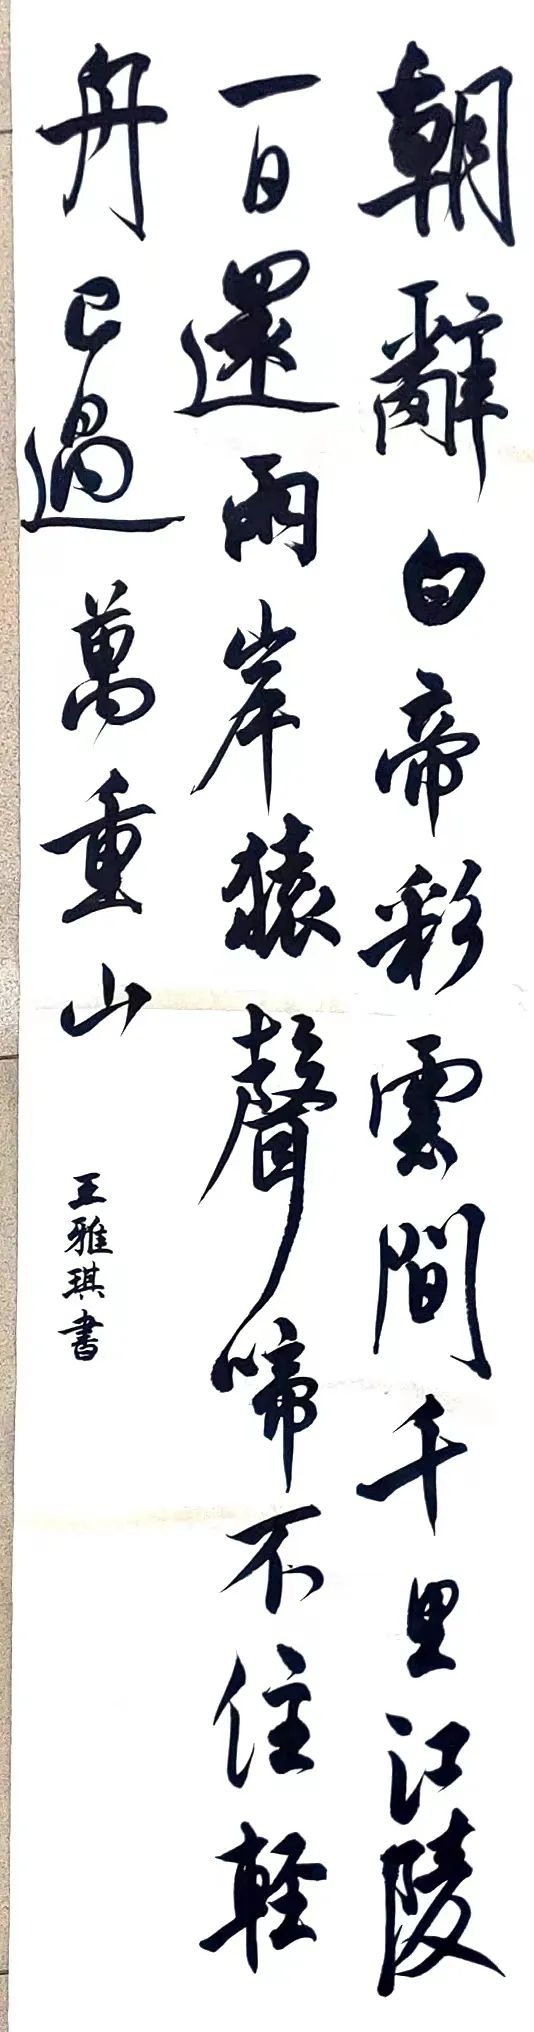 朝辭白帝彩雲間千里江陵
一日還兩岸猿聲啼不住軽
舟已過萬重山
王雅琪書